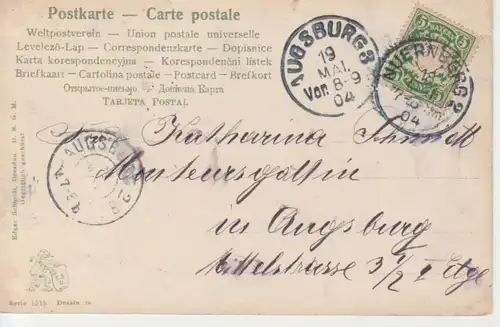 Postkarte — Carte postale
Weltpostverein – Union postale universelle
Levelező-Lap – Correspondenzkarte – Dopisnice
Karta korespondencyjna – Korespondenční lístek
Briefkaart – Cartolina postale – Postcard – Brefkort
Открытое письмо – Дописна Карта
TARJETA POSTAL
AUGSBURG 3
19
MAI.
Vor. 8-9
04
5 BAYERN 5
NUERNBERG 2
18
04
AUGSB
Katharina Schmidt
Monteursgattin
in Augsburg
Mittelstrasse 3 1/2 I Etge
Serie 1255